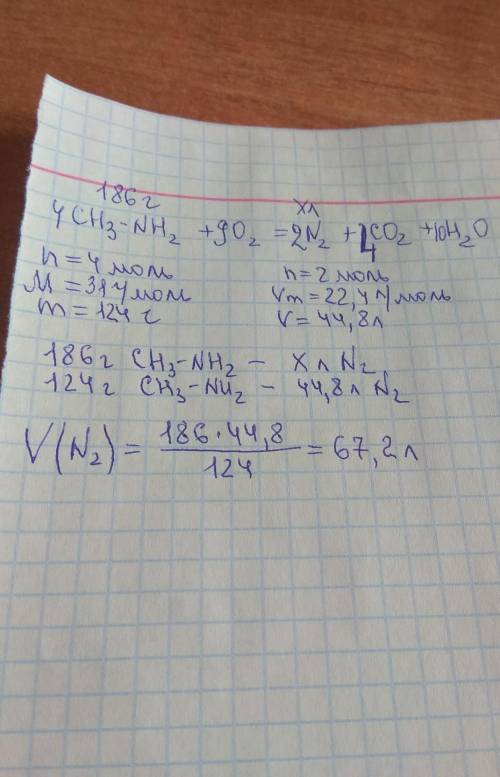 186г хл
4CH₃-NH₂ + 9O₂ = 2N₂ + 4CO₂ + 10H₂O
n = 4 моль n = 2 моль
M = 31г/моль Vm = 22,4л/моль
m = 124 г V = 44,8л
186г CH₃-NH₂ - х л N₂
124г CH₃-NH₂ - 44,8л N₂
V(N₂) = 186·44,8 / 124 = 67,2л